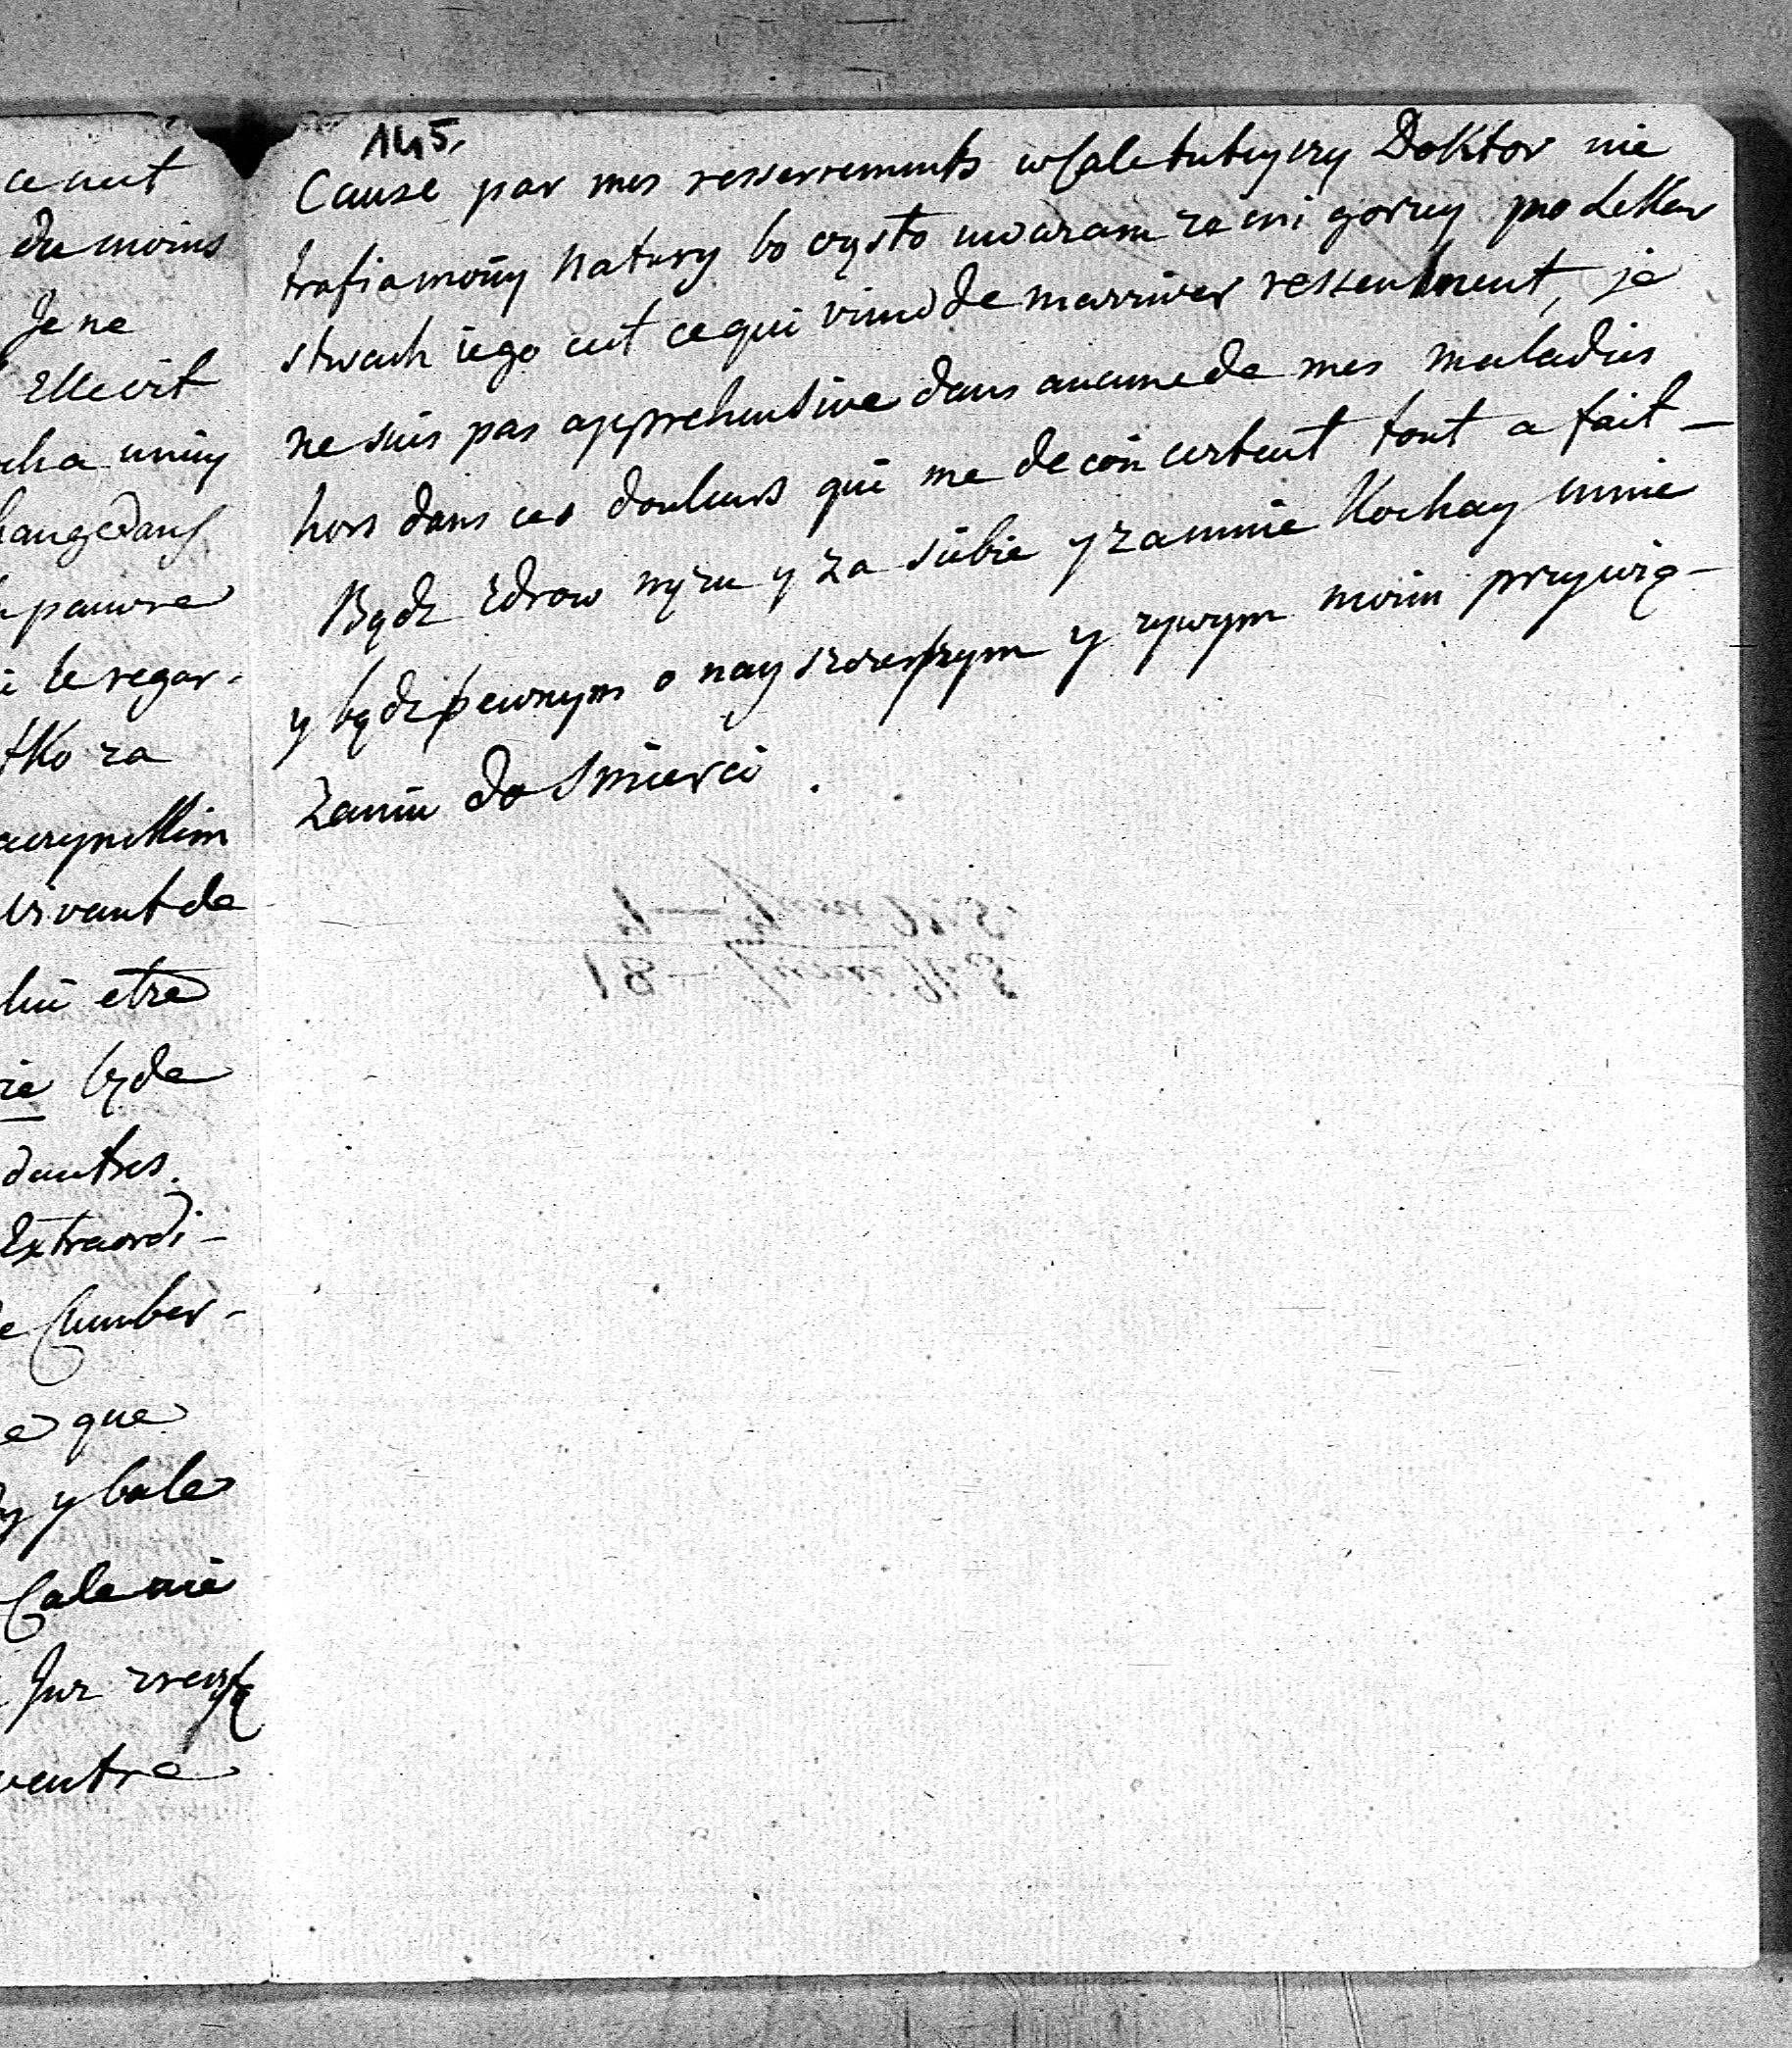 ce neut
du moins
Je ne
Elle vit
cha uniy
pauvre
le regar-
tko za
vivant de
lui etre
ie będe
dautres.
Extraordi-
e Cumber-
e que
y bale
Cale nie
Juz
ventre
145.
Cause par mes resserrements wCale tuteyszy Doktor nie
trafia moiiy Natury bo często uwazam ze mi gorzy po LeKar
stwach iego cut cequi vimd de marriver ressentment, je
ne suis pas apprehensive dans aucune de mes maladies
hors dans ces douleurs qui me deconcertent tout a fait —
Bądz Zdrow męzu y za siebie y zamnie Kochay mnie
y bądz pewnym o nayszczerszym y zywym moim przywią-
zaniu do Smierci .